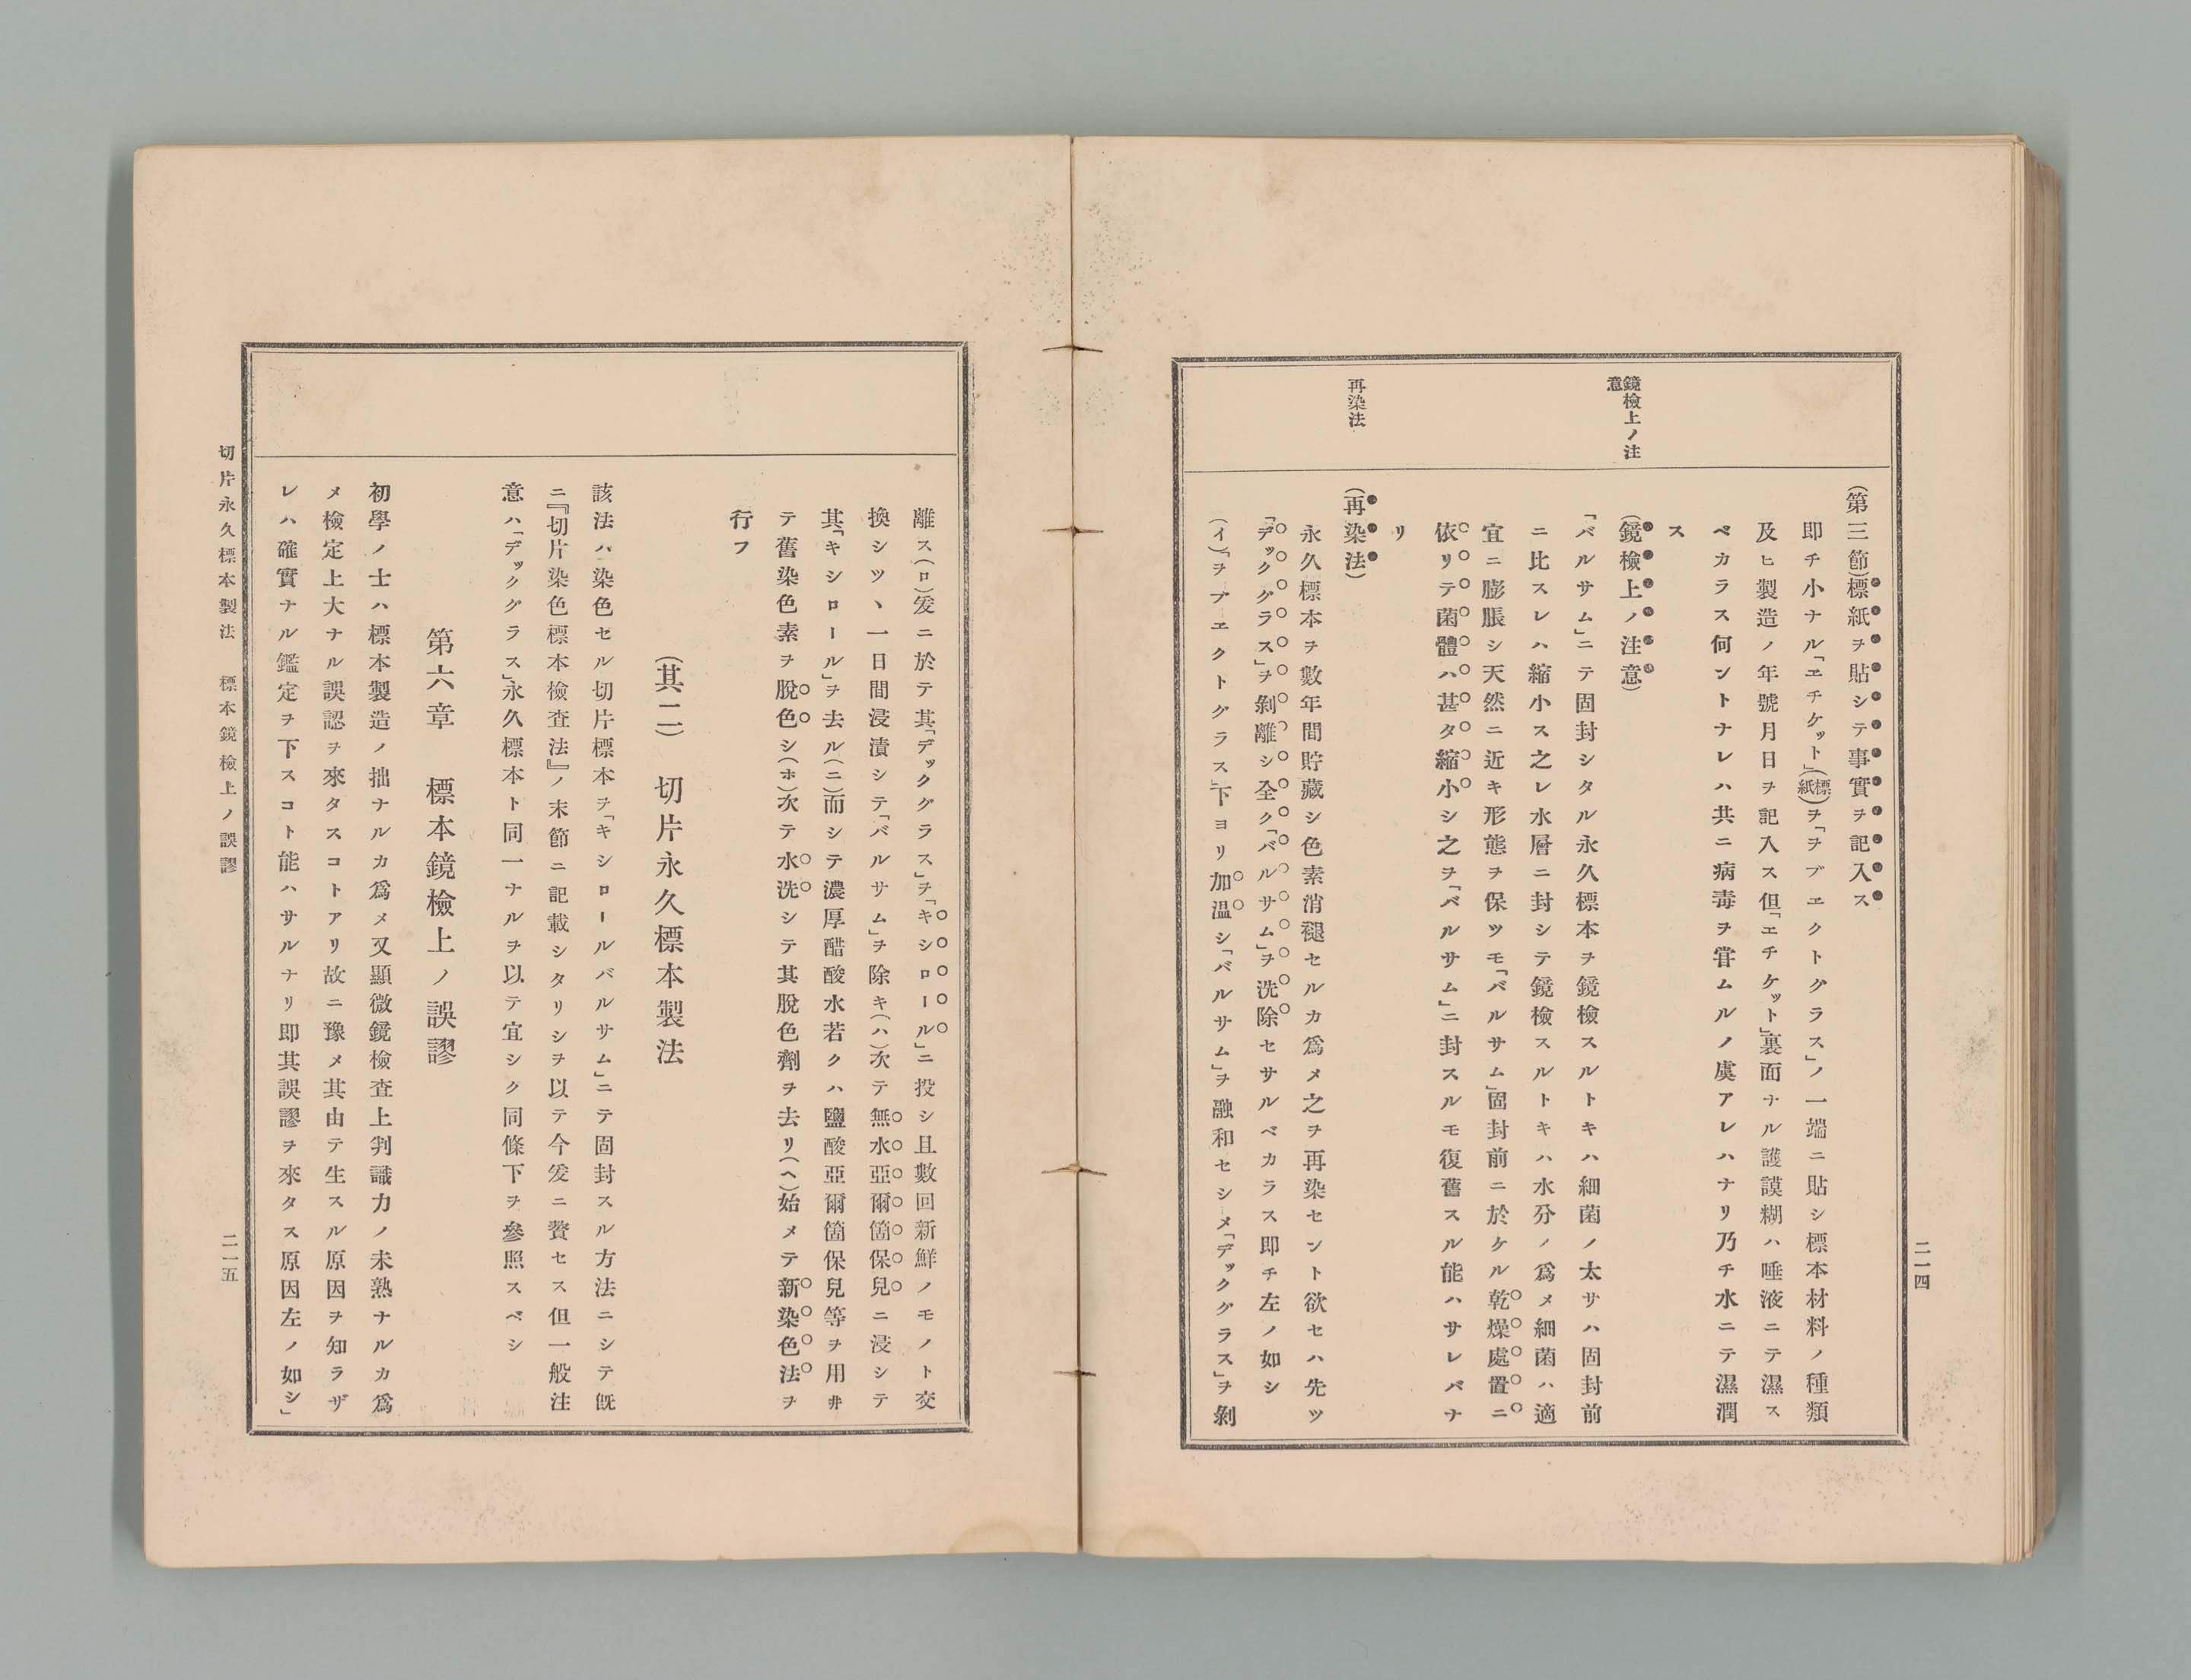 二一四
鏡檢上ノ注
意
再染法
(第三節)標紙ヲ貼シテ事實ヲ記入ス
即チ小ナル「ヱチケット」(標紙)ヲ「ヲブヱクトグラス」ノ一端ニ貼シ標本材料ノ種類
及ヒ製造ノ年號月日ヲ記入ス但「ヱチケット」裏面ナル護謨糊ハ唾液ニテ濕ス
ベカラス何ントナレハ共ニ病毒ヲ嘗ムルノ虞アレハナリ乃チ水ニテ濕潤
ス
(鏡檢上ノ注意)
「バルサム」ニテ固封シタル永久標本ヲ鏡檢スルトキハ細菌ノ太サハ固封前
ニ比スレハ縮小ス之レ水層ニ封シテ鏡檢スルトキハ水分ノ爲メ細菌ハ適
宜ニ膨脹シ天然ニ近キ形態ヲ保ツモ「バルサム」固封前ニ於ケル乾燥處置ニ
依リテ菌體ハ甚タ縮小シ之ヲ「バルサム」ニ封スルモ復舊スル能ハサレバナ
リ
(再染法)
永久標本ヲ數年間貯藏シ色素消褪セルカ爲メ之ヲ再染セント欲セハ先ツ
「デックグラス」ヲ剝離シ全ク「バルサム」ヲ洗除セサルベカラス即チ左ノ如シ
(イ)「ヲブヱクトグラス」下ヨリ加温シ「バルサム」ヲ融和セシメ「デックグラス」ヲ剝
離ス(ロ)爰ニ於テ其「デックグラス」ヲ「キシロール」ニ投シ且數回新鮮ノモノト交
換シツヽ一日間浸漬シテ「バルサム」ヲ除キ(ハ)次テ無水亞爾箇保兒ニ浸シテ
其「キシロール」ヲ去ル(ニ)而シテ濃厚醋酸水若クハ鹽酸亞爾箇保兒等ヲ用井
テ舊染色素ヲ脫色シ(ホ)次テ水洗シテ其脫色劑ヲ去リ(ヘ)始メテ新染色法ヲ
行フ
(其二) 切片永久標本製法
該法ハ染色セル切片標本ヲ「キシロールバルサム」ニテ固封スル方法ニシテ既
ニ『切片染色標本檢查法』ノ末節ニ記載シタリシヲ以テ今爰ニ贅セス但一般注
意ハ「デックグラス」永久標本ト同一ナルヲ以テ宜シク同條下ヲ參照スベシ
第六章 標本鏡檢上ノ誤謬
初學ノ士ハ標本製造ノ拙ナルカ爲メ又顯微鏡檢查上判識力ノ未熟ナルカ爲
メ檢定上大ナル誤認ヲ來タスコトアリ故ニ豫メ其由テ生スル原因ヲ知ラザ
レハ確實ナル鑑定ヲ下スコト能ハサルナリ即其誤謬ヲ來タス原因左ノ如シ」
切片永久標本製法 標本鏡檢上ノ誤謬
二一五